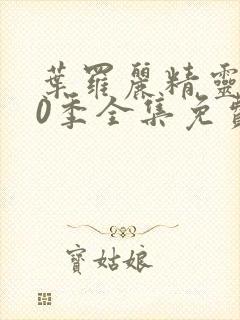 葉羅麗精靈
0季全集免費
寶姑娘